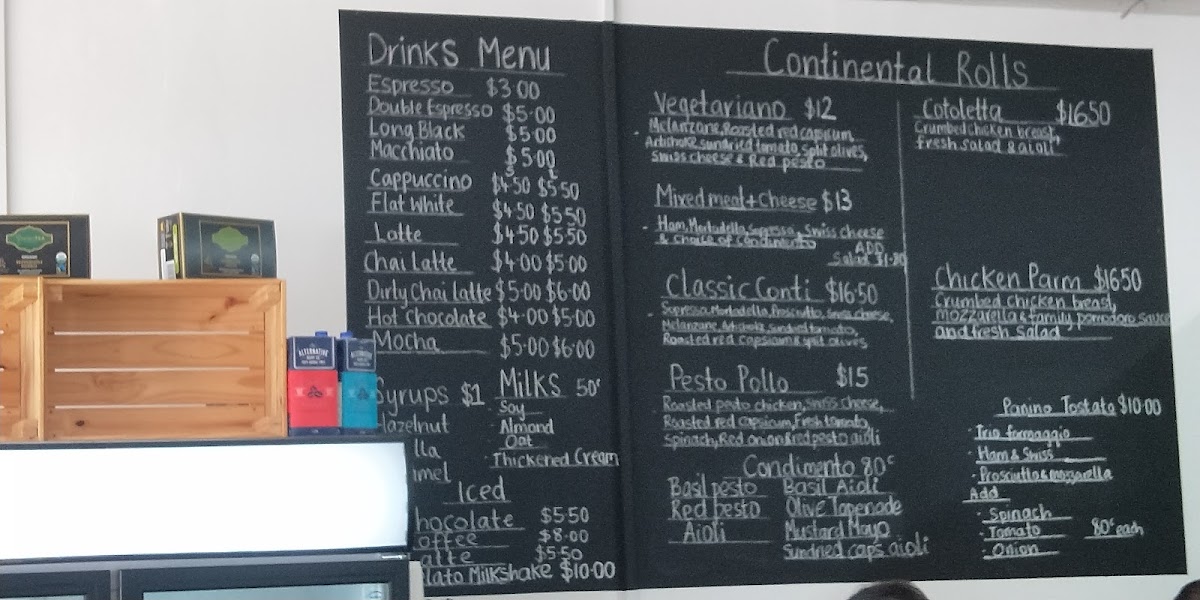 Drinks Menu
Espresso $3.00
Double Espresso $5.00
Long Black $5.00
Macchiato $5.00
S L
Cappuccino $4.50 $5.50
Flat White $4.50 $5.50
Latte $4.50 $5.50
Chai Latte $4.00 $5.00
Dirty Chai Latte $5.00 $6.00
Hot Chocolate $4.00 $5.00
Mocha $5.00 $6.00
Syrups $1
azelnut
lla
mel
Milks 50c
Soy
Almond
Oat
Thickened Cream
Iced
hocolate $5.50
offee $8.00
atte $5.50
lato Milkshake $10.00
Continental Rolls
Vegetariano $12
Melanzane, Roasted red capsicum,
Artichoke, sundried tomato, split olives,
Swiss cheese & Red pesto
Mixed meat + Cheese $13
Ham, Mortadella, Sopressa, Swiss cheese
& Choice of Condimento
ADD
Salad $1.80
Classic Conti $16.50
Sopressa, Mortadella, Prosciutto, Swiss cheese,
Melanzane, Artichoke, Sundried tomato,
Roasted red capsicum & split olives
Pesto Pollo $15
Roasted pesto chicken, Swiss cheese,
Roasted red capsicum, Fresh tomato,
Spinach, Red onion & red pesto aioli
Condimento 80c
Basil pesto
Red pesto
Aioli
Basil Aioli
Olive Tapenade
Mustard Mayo
Sundried caps aioli
Cotoletta $16.50
Crumbed chicken breast,
fresh salad & aioli
Chicken Parm $16.50
Crumbed chicken breast,
mozzarella & family pomodoro sauce
and fresh salad
Panino Tostato $10.00
Trio formaggio
Ham & Swiss
Prosciutto & mozzarella
Add
Spinach
Tomato 80c each
Onion
ALTERNATIVE
ALTERNATIVE